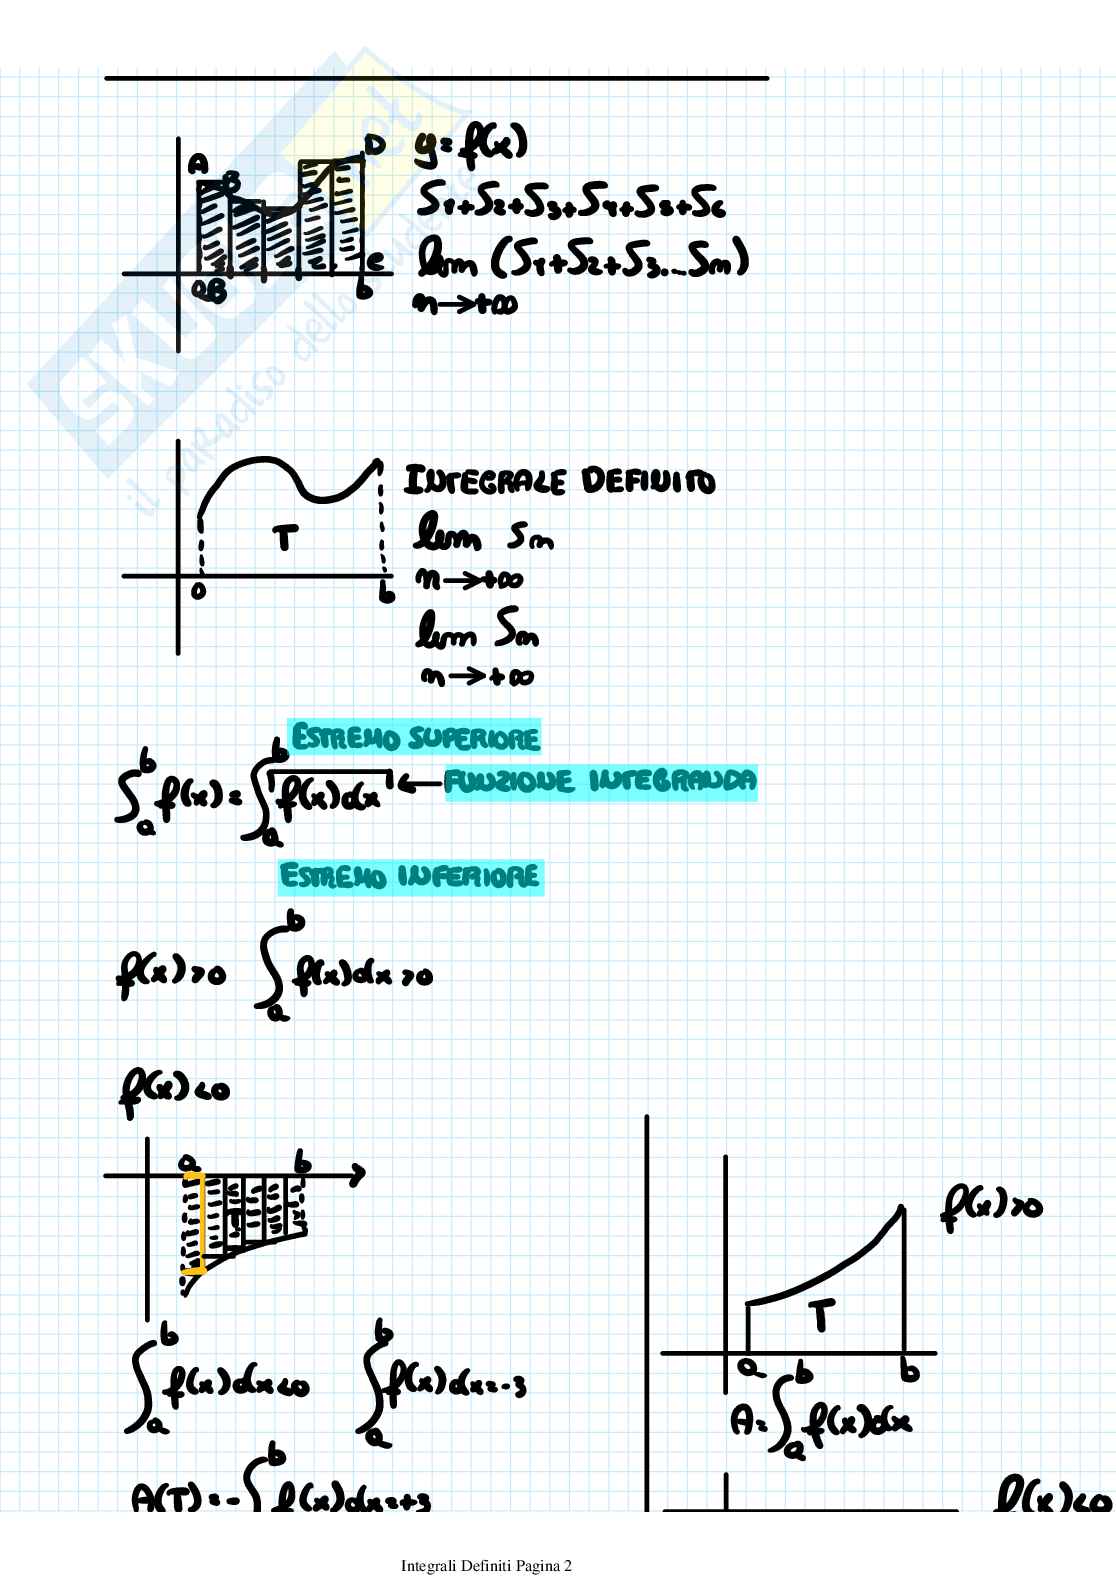 SKUOLA.net
il paradiso dello studente
A B D y=f(x)
S1+S2+S3+S4+S5+S6
lim (S1+S2+S3...Sm)
n→+∞
a B b e
INTEGRALE DEFINITO
T
lim sm
n→+∞
a b
lim Sm
n→+∞
ESTREMO SUPERIORE
∫ₐᵇ f(x) = ∫ₐᵇ f(x)dx ← FUNZIONE INTEGRANDA
ESTREMO INFERIORE
f(x)>0 ∫ₐᵇ f(x)dx >0
f(x)<0
a b
T
∫ₐᵇ f(x)dx<0 ∫ₐᵇ f(x)dx=-3
A(T)=-∫ᵇ f(x)dx=+3
f(x)>0
T
a b
A=∫ₐᵇ f(x)dx
f(x)<0
Integrali Definiti Pagina 2